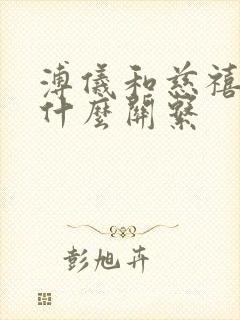 溥儀和慈禧
什麼關繫
彭旭卉